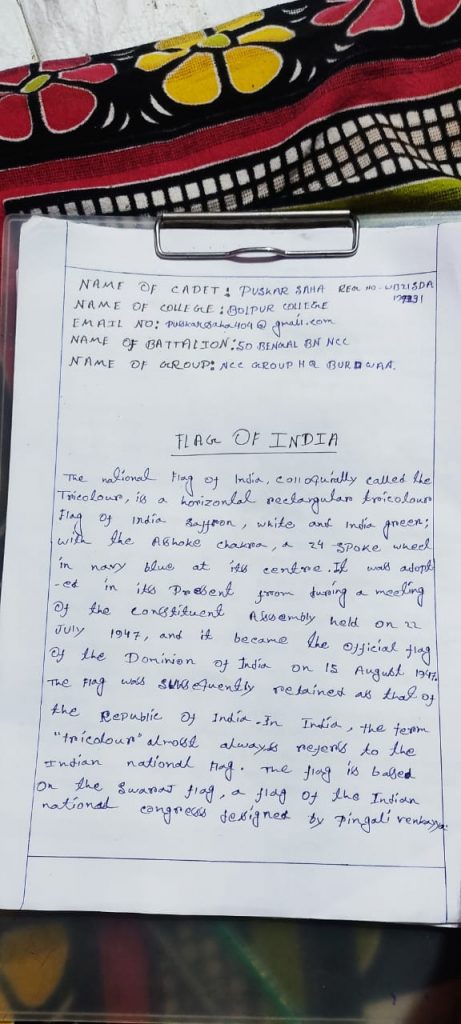 NAME OF CADET: PUSKAR SAHA REG NO - WB21SDA
NAME OF COLLEGE: BOLPUR COLLEGE
EMAIL NO: puskarsaha404@gmail.com
NAME OF BATTALION: 50 BENGAL BN NCC
NAME OF GROUP: NCC GROUP HQ BURDWAA.
FLAG OF INDIA
The national Flag of India, colloquially called the
Tricolour, is a horizontal rectangular tricolour
flag of India saffron, white and India green;
with the Ashoke chakra, a 24 spoke wheel
in navy blue at its centre. It was adopt
-ed in its Present from during a meeting
of the constituent Assembly held on 22
July 1947, and it became the official flag
of the Dominion of India on 15 August 1947.
The Flag was subsequently retained as that of
the Republic of India. In India, the term
"tricolour" almost always refers to the
Indian national Flag. The flag is based
on the Swaraj flag, a flag of the Indian
national congress designed by Pingali venkayya.